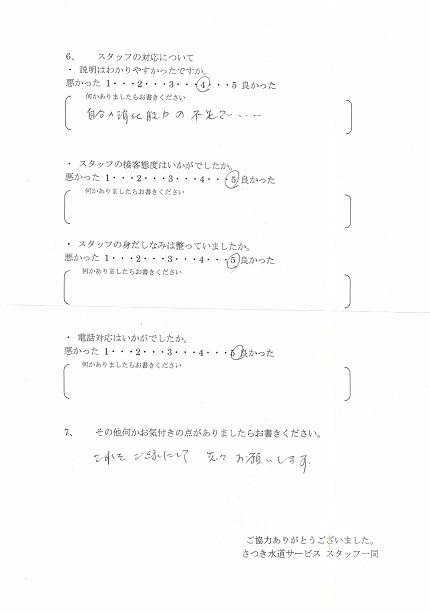 6、 スタッフの対応について
・ 説明はわかりやすかったですか。
悪かった 1・・・2・・・3・・・4・・・5 良かった
何かありましたらお書きください
自分の消化能力の不足で・・・
・ スタッフの接客態度はいかがでしたか。
悪かった 1・・・2・・・3・・・4・・・5 良かった
何かありましたらお書きください
・ スタッフの身だしなみは整っていましたか。
悪かった 1・・・2・・・3・・・4・・・5 良かった
何かありましたらお書きください
・ 電話対応はいかがでしたか。
悪かった 1・・・2・・・3・・・4・・・5 良かった
何かありましたらお書きください
7、 その他何かお気付きの点がありましたらお書きください。
これをご縁にして お願いします.
ご協力ありがとうございました。
さつき水道サービス スタッフ一同